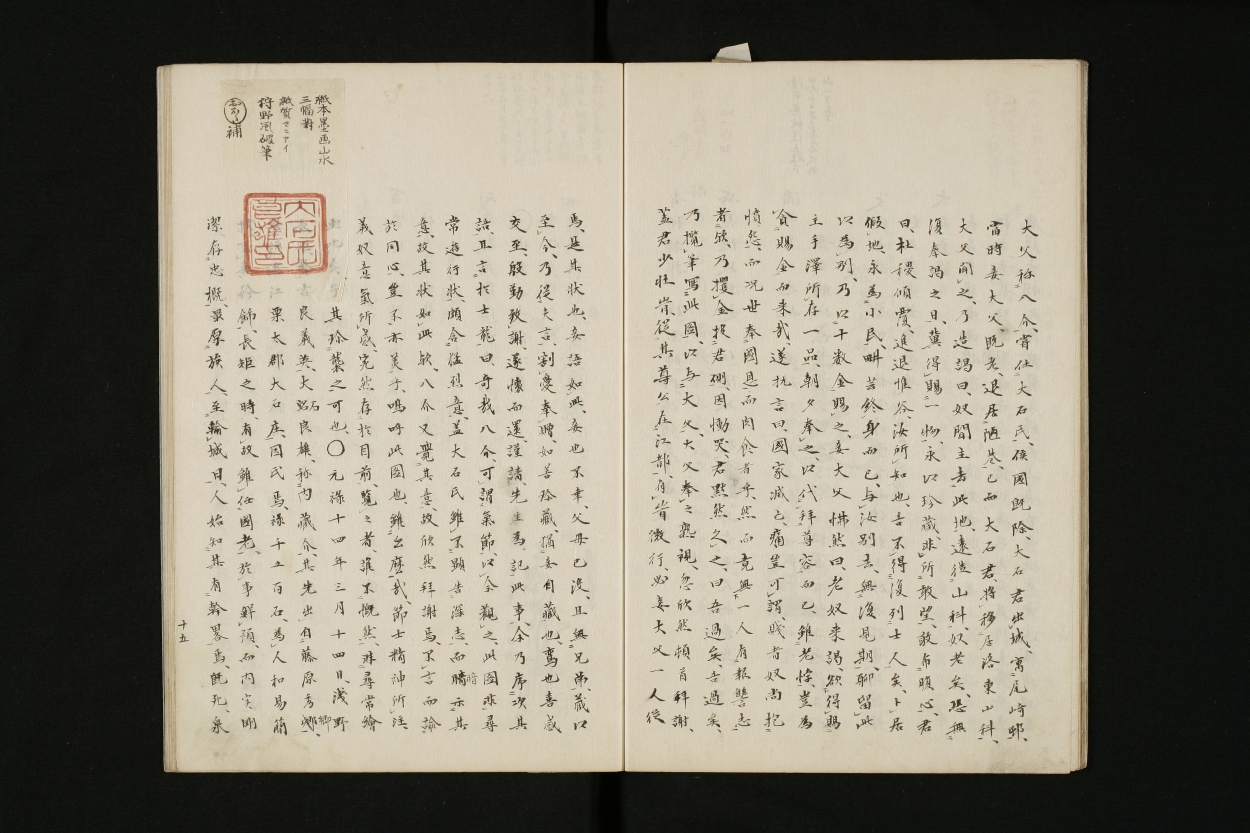 大父称八介、嘗仕大石氏、侯国既除、大石君出城、寓尾崎邨、
当時妾大父、既老、退居陋巷、已而大石君、将移居洛東山科、
大父聞之、乃造謁曰、奴聞主去此地、遠徙山科、奴老矣、恐無
復奉謁之日、冀得賜一物、永以珍蔵、非所敢望、敢布腹心、君
曰、社稷傾覆、進退惟谷、汝所知也、吾不得復列士人矣、卜居
僻地、永為小民、畊芸終身而已、与汝別去、無復見期、聊留此
以為別、乃以十数金賜之、妾大父怫然曰、老奴来謁、欲得賜
主手沢所存一品、朝夕奉之、以代拝尊容而已、雖老悖、豈為
貪賜金而来哉、遂抗言曰、国家滅亡、痛豈可謂、賎者奴尚抱
憤怨、而況世奉国恩、而肉食者乎、然而竟無一人有報讐志
者歟、乃攫金投君側、因慟哭、君黙然久之曰、吾過矣、吾過矣、
乃攬筆写此図、以与大父、大父奉之熟視、忽欣然頓首拝謝、
蓋君少壮嘗従其尊公在江都、有嘗微行、必妾大父一人従
焉、是其状也、妾語如此、妾也不幸、父母已没、且無兄弟、蔵以
至今、乃従夫言、割愛奉贈、如善珍蔵、猶妾自蔵也、鸞也喜感
交至、殷勤致謝、遂懐而還、謹請先生焉、記此事、余乃序次其
語、且言於士龍曰、奇哉八介、可謂気節、以余観之、此図非尋
常遊行状、頗含猛烈意、蓋大石氏雖不顕告深志、而暗示其
意、故其状如此歟、八介又覺其意、故欣然拝謝焉、不言而諭
於同心、豈不亦美乎、嗚呼此図也、雖幺麼哉、節士精神所注、
義奴意気所感、宛然存於目前、覧之者、誰不慨然、非尋常絵
其珍襲之可也、〇元禄十四年三月十四日、浅野
良義英、大石良雄、称内蔵介、其先出自藤原秀郷、
江栗太郡大石庄、因氏焉、禄千五百石、為人和易簡
飾、長矩之時、有故雖任国老、於事鮮預、而内実剛
潔、存忠概、景原族人、至輪城日、人始知其有幹畧焉、既死、泉
十五
紙本墨画山水
三幅対
紙質マニアイ
狩野風破筆
補